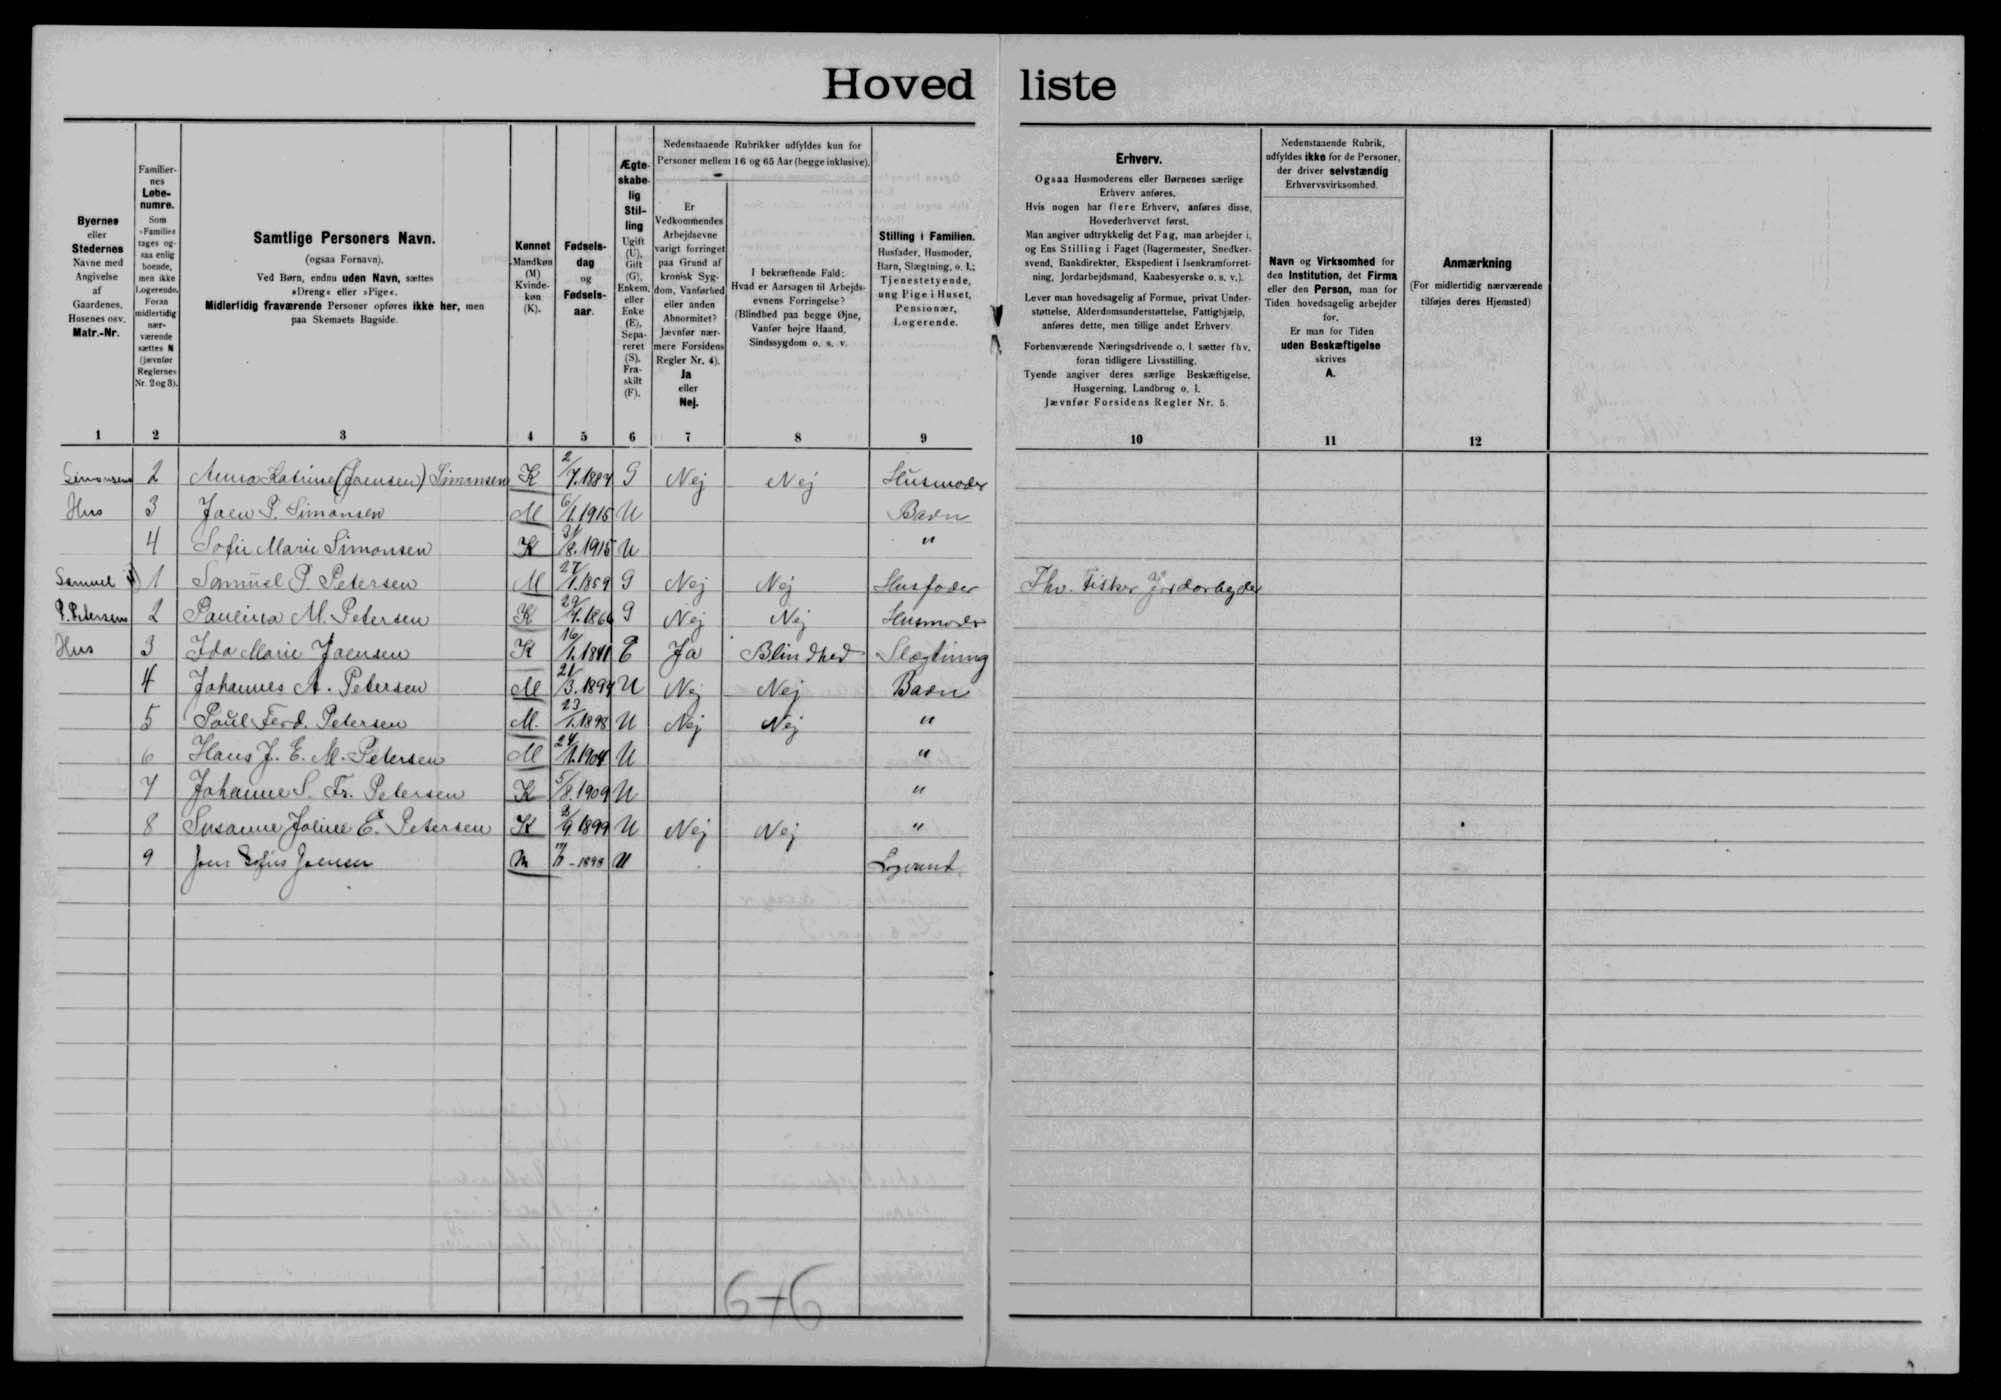 Hoved liste
Byernes eller Stedernes Navne med Angivelse af Gaardenes, Husenes osv. Matr.-Nr.
Familiernes Løbenumre. Som »Familie« tages ogsaa enlig boende, men ikke Logerende. Foran midlertidig nærværende sættes N (jævnfør Reglernes Nr. 2 og 3).
Samtlige Personers Navn.
(ogsaa Fornavn).
Ved Børn, endnu uden Navn, sættes
»Dreng« eller »Pige«.
Midlertidig fraværende Personer opføres ikke her, men
paa Skemaets Bagside.
Kønnet Mandkøn (M) Kvindekøn (K).
Fødselsdag og Fødselsaar.
Ægteskabelig Stilling Ugift (U), Gift (G), Enkem. eller Enke (E), Separeret (S). Fraskilt (F).
Nedenstaaende Rubrikker udfyldes kun for
Personer mellem 16 og 65 Aar (begge inklusive).
Er Vedkommendes Arbejdsevne varigt forringet paa Grund af kronisk Sygdom, Vanførhed eller anden Abnormitet? Jævnfør nærmere Forsidens Regler Nr. 4). Ja eller Nej.
I bekræftende Fald: Hvad er Aarsagen til Arbejdsevnens Forringelse? (Blindhed paa begge Øjne, Vanfør højre Haand, Sindssygdom o. s. v.
Stilling i Familien. Husfader, Husmoder, Barn, Slægtning, o. l.; Tjenestetyende, ung Pige i Huset, Pensionær, Logerende.
Erhverv.
Ogsaa Husmoderens eller Børnenes særlige
Erhverv anføres.
Hvis nogen har flere Erhverv, anføres disse,
Hovederhvervet først.
Man angiver udtrykkelig det Fag, man arbejder i,
og Ens Stilling i Faget (Bagermester, Snedker-
svend, Bankdirektør, Ekspedient i Isenkramforret-
ning, Jordarbejdsmand, Kaabesyerske o. s. v.).
Lever man hovedsagelig af Formue, privat Under-
støttelse, Alderdomsunderstøttelse, Fattighjælp,
anføres dette, men tillige andet Erhverv.
Forhenværende Næringsdrivende o. l. sætter fhv.
foran tidligere Livsstilling.
Tyende angiver deres særlige Beskæftigelse,
Husgerning, Landbrug o. l.
Jævnfør Forsidens Regler Nr. 5.
Nedenstaaende Rubrik,
udfyldes ikke for de Personer,
der driver selvstændig
Erhvervsvirksomhed.
Navn og Virksomhed for
den Institution, det Firma
eller den Person, man for
Tiden hovedsagelig arbejder
for.
Er man for Tiden
uden Beskæftigelse
skrives
A.
Anmærkning
(For midlertidig nærværende
tilføjes deres Hjemsted)
1 2 3 4 5 6 7 8 9 10 11 12
Simonsens 2 Anna Katrine (Joensen) Simonsen K 2/7.1887 G Nej Nej Husmoder
Hus 3 Joen P. Simonsen M 6/1.1915 U Barn
4 Sofie Marie Simonsen K 31/8.1915 U "
Samuel 1 Samúel P. Petersen M 27/1.1859 G Nej Nej Husfader Fhv. Fisker Jordarbejder
P. Petersens 2 Paulina M. Petersen K 29/9.1866 G Nej Nej Husmoder
Hus 3 Ida Marie Joensen K 16/1.1841 E Ja Blindhed Slægtning
4 Johannes A. Petersen M 21/3.1894 U Nej Nej Barn
5 Poúl Ferd. Petersen M. 23/1.1898 U Nej Nej "
6 Hans J. E. M. Petersen M 24/1.1904 U "
7 Johanne S. Fr. Petersen K 5/8.1909 U "
8 Susanne Joline E. Petersen K 9.1899 U Nej Nej "
9 Joen Sofus Joensen M 1898 U Logerend.
6+6